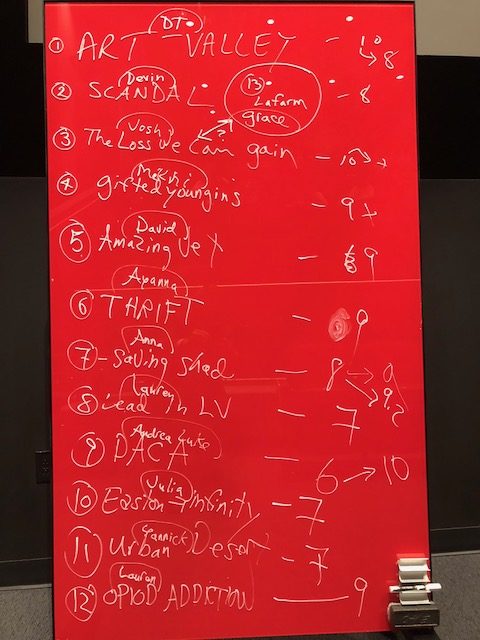 DJ
① ART VALLEY - 10 → 8
Devin
② SCANDAL - 8
13
Lafarm
grace
Josh
③ The Loss we can gain - 10
④ gifted youngins - 9
David
⑤ Amazing Vet - 9
Ayanna
⑥ THRIFT - 9
Anna
⑦ - Saving Shad - 8
Lauren
⑧ Lead in LV - 7
Andrea Luke
⑨ DACA - 6 → 10
Julia
⑩ Easton - infinity - 7
Yannick
⑪ Urban Desert - 7
Lauren
⑫ OPIOD ADDICTION - 9